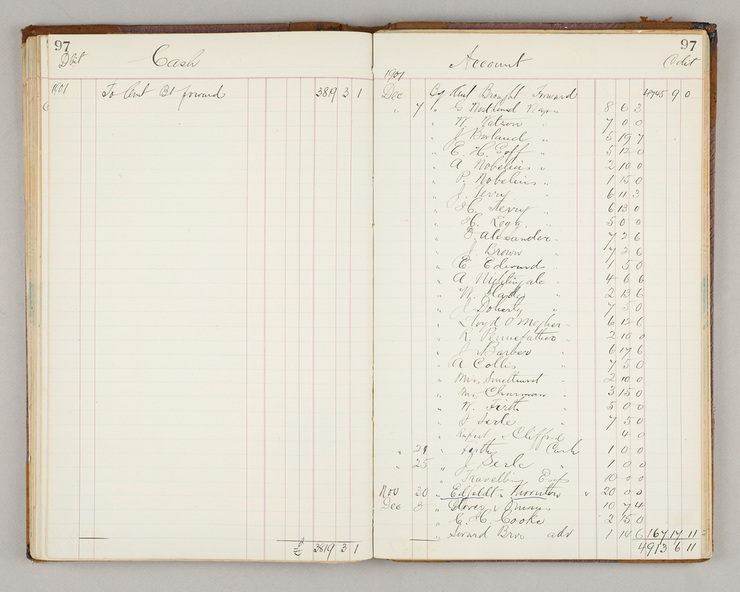 97
Dbt
Cash
1907
To Amt Bt forward 3819 3 1
£ 3819 3 1
97
Account
Credit
1907
Dec By Amt Brought Forward 4745 9 0
" 7 " G Wages 8 6 3
" W. Watson " 7 0 0
" J Borland " 5 19 7
" E. H. Goff " 5 12 0
" A Nobelius " 2 10 0
" P. Nobelius " 1 15 0
" J 6 11 3
" H. 6 13 0
" H. Legg " 5 0 0
" Alexander 7 2 6
" J Brown " 7 2 6
" E Edwards 1 5 0
" A Nightingale " 4 6 6
" 2 13 6
" Doherty " 7 5 0
" Lloyd O 6 12 6
" R. Pennefather " 2 10 0
" J Barber " 6 17 6
" A Collis " 7 5 0
" Mrs Smethurst " 2 10 0
" Mr. Chapman " 3 15 0
" W. Firth " 5 0 0
" J Serle " 7 5 0
" Rupert " Clifford 4 0
" 21 " Firth Cash 1 0 0
" 25 " J Serle " 1 0 0
" Travelling Exps 10 0 0
Nov 30 " & Thornton 20 0 0
Dec 3 " Glover & 10 7 4
" G. H. Cooke 2 15 0
" Bros adv 1 16 6 167 17 11
4913 6 11